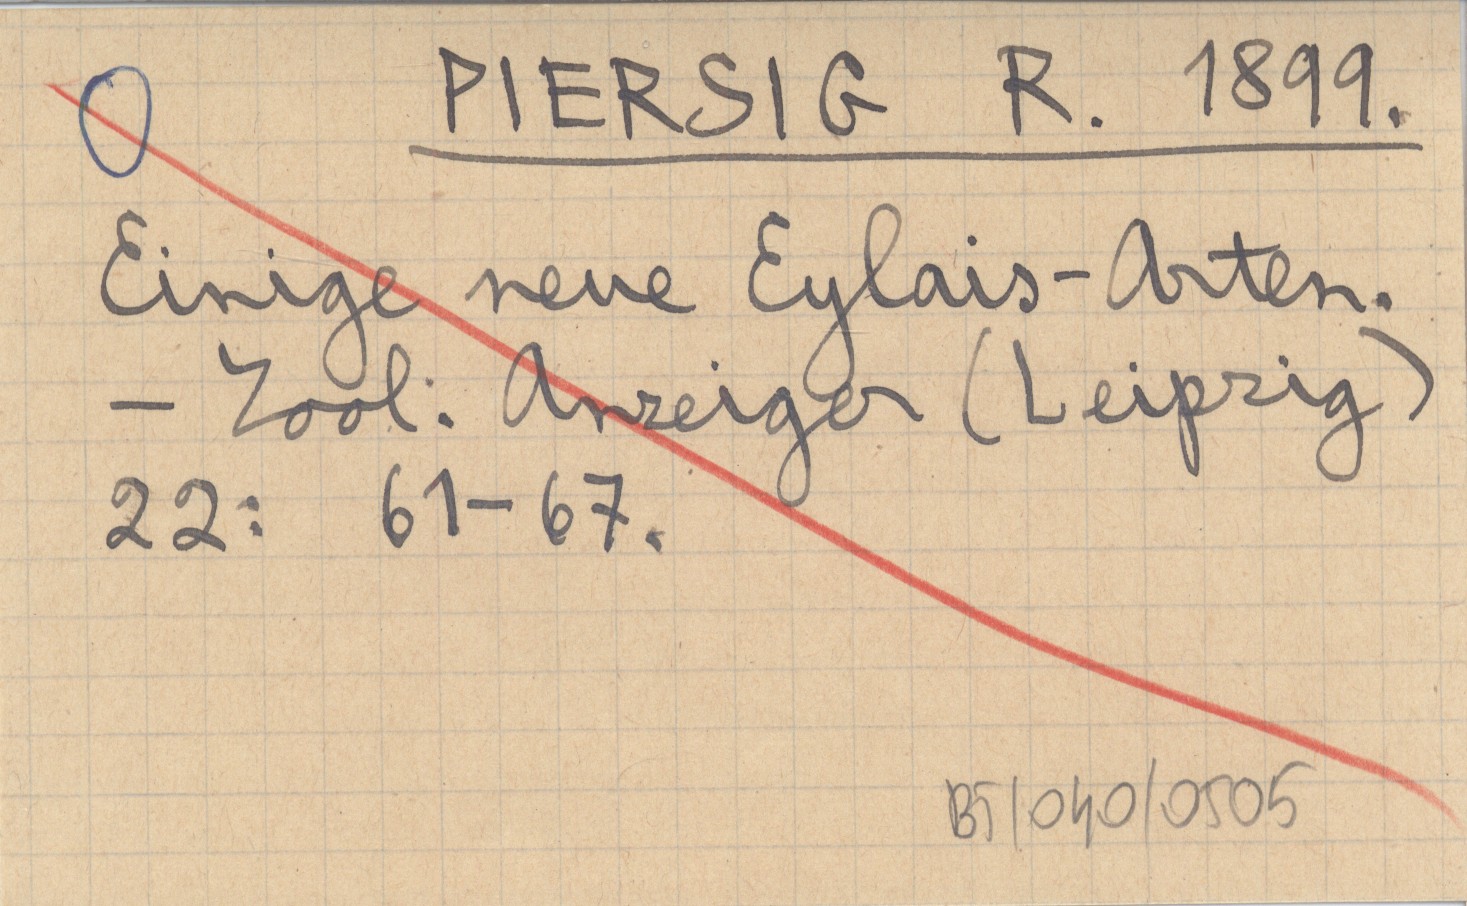 PIERSIG R. 1899.
Einige neue Eylais-Arten.
- Zool. Anzeiger (Leipzig)
22: 61-67.
BT/040/0505